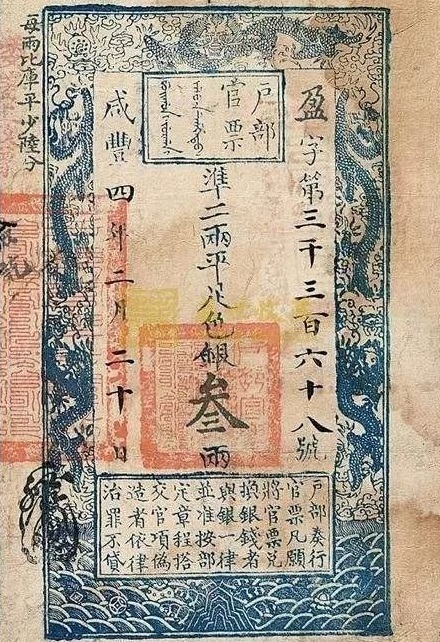 戶部
官票
盈字第三千三百六十八號
準二兩平足色銀叁兩
咸豐四年二月二十日
每兩比庫平少陸分
戶部奏行
官票凡願
將官票兌
換銀錢者
與銀一律
並准按部
定章程搭
交官項偽
造者依律
治罪不貸